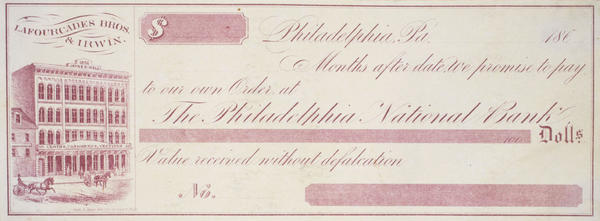 LAFOURCADES BROS.
& IRWIN.
$
Philadelphia, Pa. 186
Months after date, We promise to pay
to our own Order, at
The Philadelphia National Bank
100 Dolls.
Value received without defalcation
No.
CLOTHS, CASSIMERES, VESTINGS